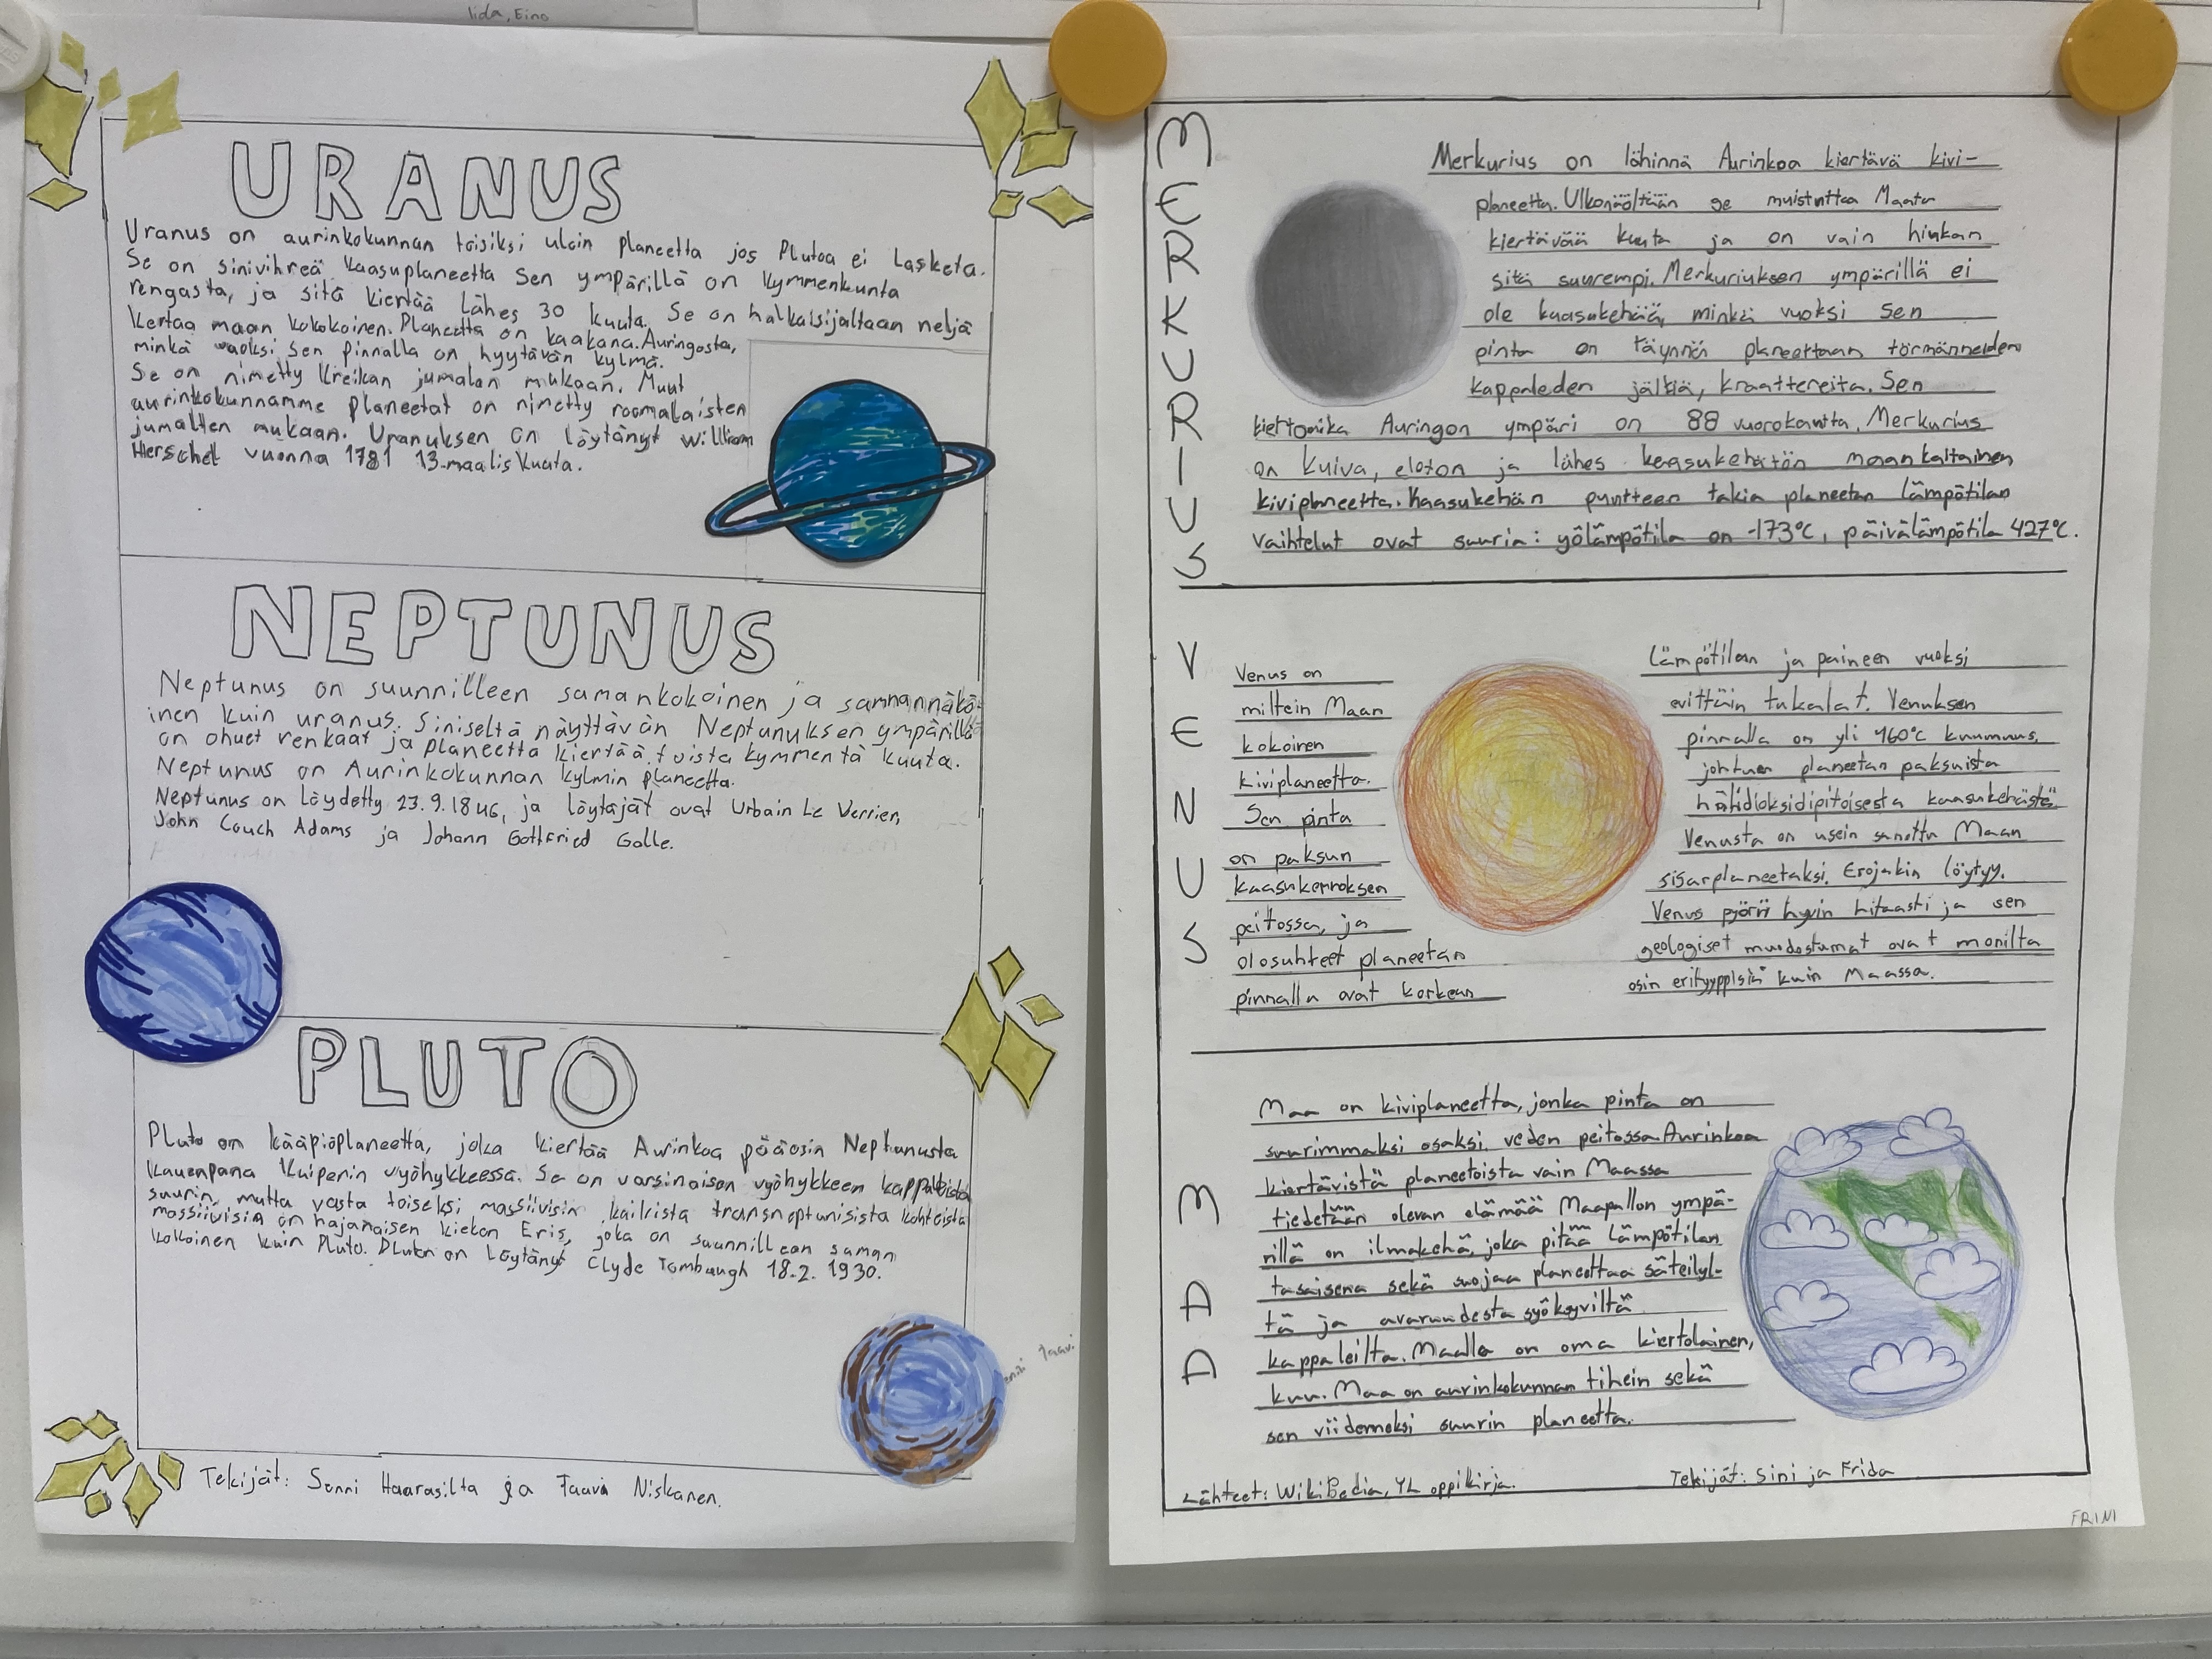 Iida, Eino
URANUS
Uranus on aurinkokunnan toisiksi uloin planeetta jos Plutoa ei Lasketa.
Se on sinivihreä kaasuplaneetta Sen ympärillä on kymmenkunta
rengasta, ja sitä kiertää Lähes 30 kuuta. Se on halkaisijaltaan neljä
kertaa maan kokokoinen. Planeetta on kaakana Auringosta,
minkä vuoksi sen pinnalla on hyytävän kylmä.
Se on nimetty Kreikan jumalan mukaan. Muut
aurinkokunnamme planeetat on nimetty roomalaisten
jumalten mukaan. Uranuksen on löytänyt William
Herschel vuonna 1781 13.maaliskuuta.
NEPTUNUS
Neptunus on suunnilleen samankokoinen ja samannäkö-
inen kuin uranus. Siniseltä näyttävän Neptunuksen ympärillä
on ohuet renkaat ja planeetta kiertää toista kymmentä kuuta.
Neptunus on Aurinkokunnan kylmin planeetta.
Neptunus on löydetty 23.9.1846, ja löytäjät ovat Urbain Le Verrier,
John Couch Adams ja Johann Gottfried Galle.
PLUTO
Pluto on kääpiöplaneetta, joka kiertää Aurinkoa pääosin Neptunusta
kauempana Kuiperin vyöhykkeessä. Se on varsinaisen vyöhykkeen kappaleista
suurin, mutta vasta toiseksi massiivisin kaikista transneptunisista kohteista
massiivisin on hajanaisen kiekon Eris, joka on suunnilleen saman
kokoinen kuin Pluto. Pluton on Löytänyt Clyde Tombaugh 18.2. 1930.
Taavi
Tekijät: Senni Haarasilta ja Taavi Niskanen.
MERKURIUS
Merkurius on lähinnä Aurinkoa kiertävä kivi-
planeetta. Ulkonäöltään se muistuttaa Maata
kiertävää kuuta ja on vain hiukan
sitä suurempi. Merkuriuksen ympärillä ei
ole kaasukehää, minkä vuoksi sen
pinta on täynnä planeettaan törmänneiden
kappaleiden jälkiä, kraattereita. Sen
kiertoaika Auringon ympäri on 88 vuorokautta. Merkurius
on kuiva, eloton ja lähes kaasukehätön maankaltainen
kiviplaneetta. Kaasukehän puutteen takia planeetan lämpötilan
vaihtelut ovat suuria: yölämpötila on -173°C, päivälämpötila 427°C.
VENUS
Venus on
miltein Maan
kokoinen
kiviplaneetta.
Sen pinta
on paksun
kaasukerroksen
peitossa, ja
olosuhteet planeetan
pinnalla ovat korkean
lämpötilan ja paineen vuoksi
erittäin tukalat. Venuksen
pinnalla on yli 460°C kuumuus,
johtuen planeetan paksuista
hiilidioksidipitoisesta kaasukehästä
Venusta on usein sanottu Maan
sisarplaneetaksi. Erojakin löytyy.
Venus pyörii hyvin hitaasti ja sen
geologiset muodostumat ovat monilta
osin erityyppisiä kuin Maassa.
MAA
Maa on kiviplaneetta, jonka pinta on
suurimmaksi osaksi veden peitossa. Aurinkoa
kiertävistä planeetoista vain Maassa
tiedetään olevan elämää Maapallon ympä-
rillä on ilmakehä, joka pitää lämpötilan
tasaisena sekä suojaa planeettaa säteilyl-
tä ja avaruudesta syöksyviltä
kappaleilta. Maalla on oma kiertolainen,
kuu. Maa on aurinkokunnan tihein sekä
sen viidenneksi suurin planeetta.
Lähteet: WikiBedia, YL oppikirja.
Tekijät: Sini ja Frida
FRINI